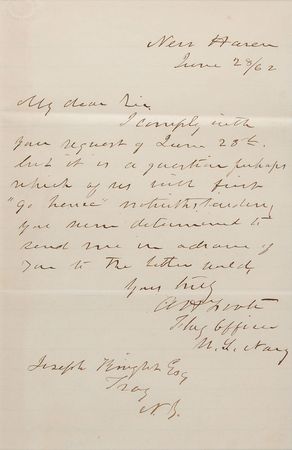 New Haven
June 28/62
My dear Sir
I comply with
your request of June 20th.
but it is a question perhaps
which of us will first
"go hence" notwithstanding
you seem determined to
send me in advance of
you to the better world
Yours truly
A H Foote
Flag Officer
U. S. Navy
Joseph Wright Esq
Troy
N. Y.